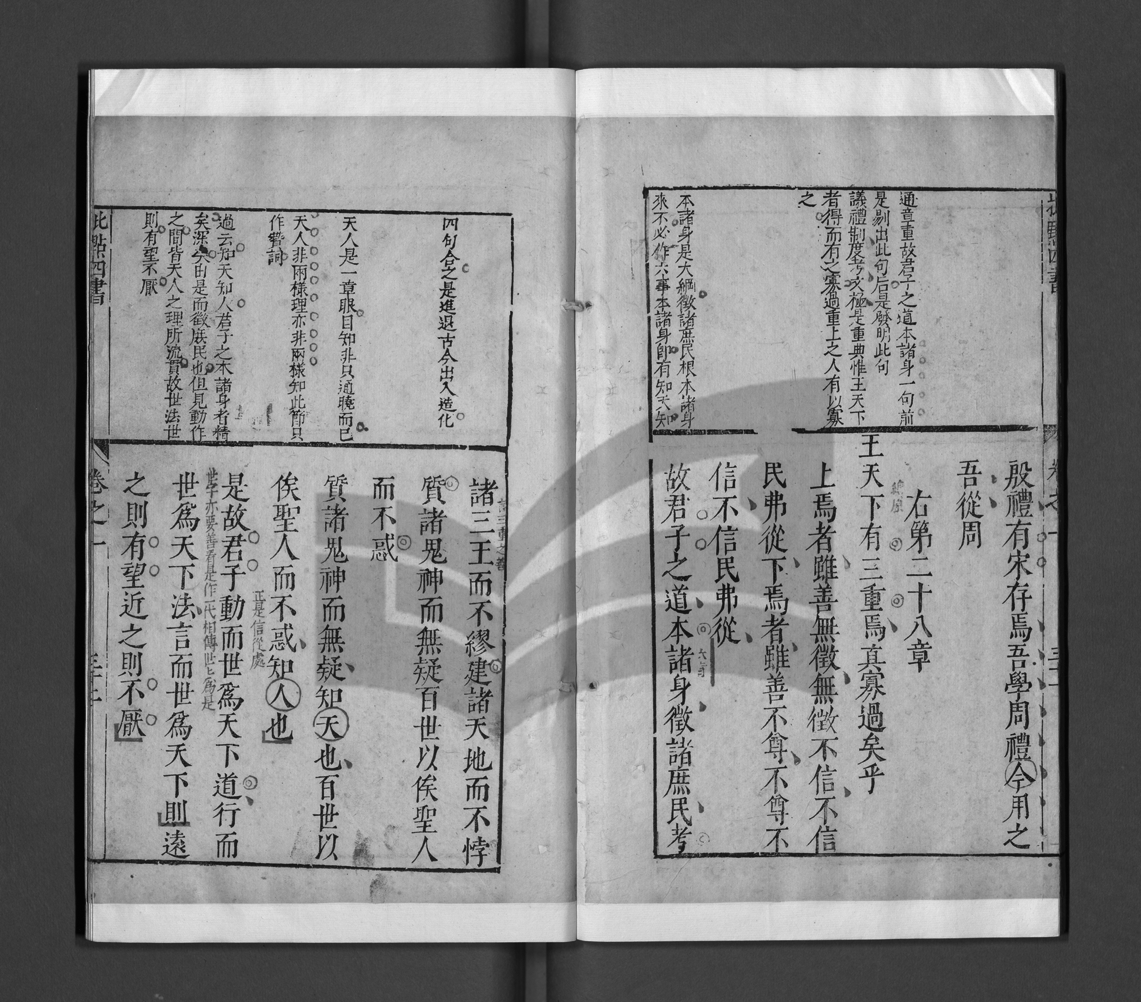 通章重故君子之道本諸身一句前
是剔出此句后是發明此句
議禮制度考文極是重典惟王天下
者得而有之寡過重上之人有以寡
之
本諸身是大綱徵諸庶民根本諸身
來不必作六事本諸身即有知天知
殷禮有宋存焉吾學周禮今用之
吾從周
右第二十八章
王天下有三重焉其寡過矣乎
上焉者雖善無徵無徵不信不信
民弗從下焉者雖善不尊不尊不
信不信民弗從
故君子之道本諸身徵諸庶民考
四句合之是進退古今出入造化
天人是一章眼目知非只通曉而已
天人非兩樣理亦非兩樣知此節只
作贊詞
過云知天知人君子之本諸身者精
矣深矣由是而徵庶民也但見動作
之間皆天人之理所流貫故世法世
則有望不厭
諸三王而不繆建諸天地而不悖
質諸鬼神而無疑百世以俟聖人
而不惑
質諸鬼神而無疑知天也百世以
俟聖人而不惑知人也
正是信從處
是故君子動而世爲天下道行而
世字亦要善看是作一代相傳世世爲是
世爲天下法言而世爲天下則遠
之則有望近之則不厭
批點四書
卷之一